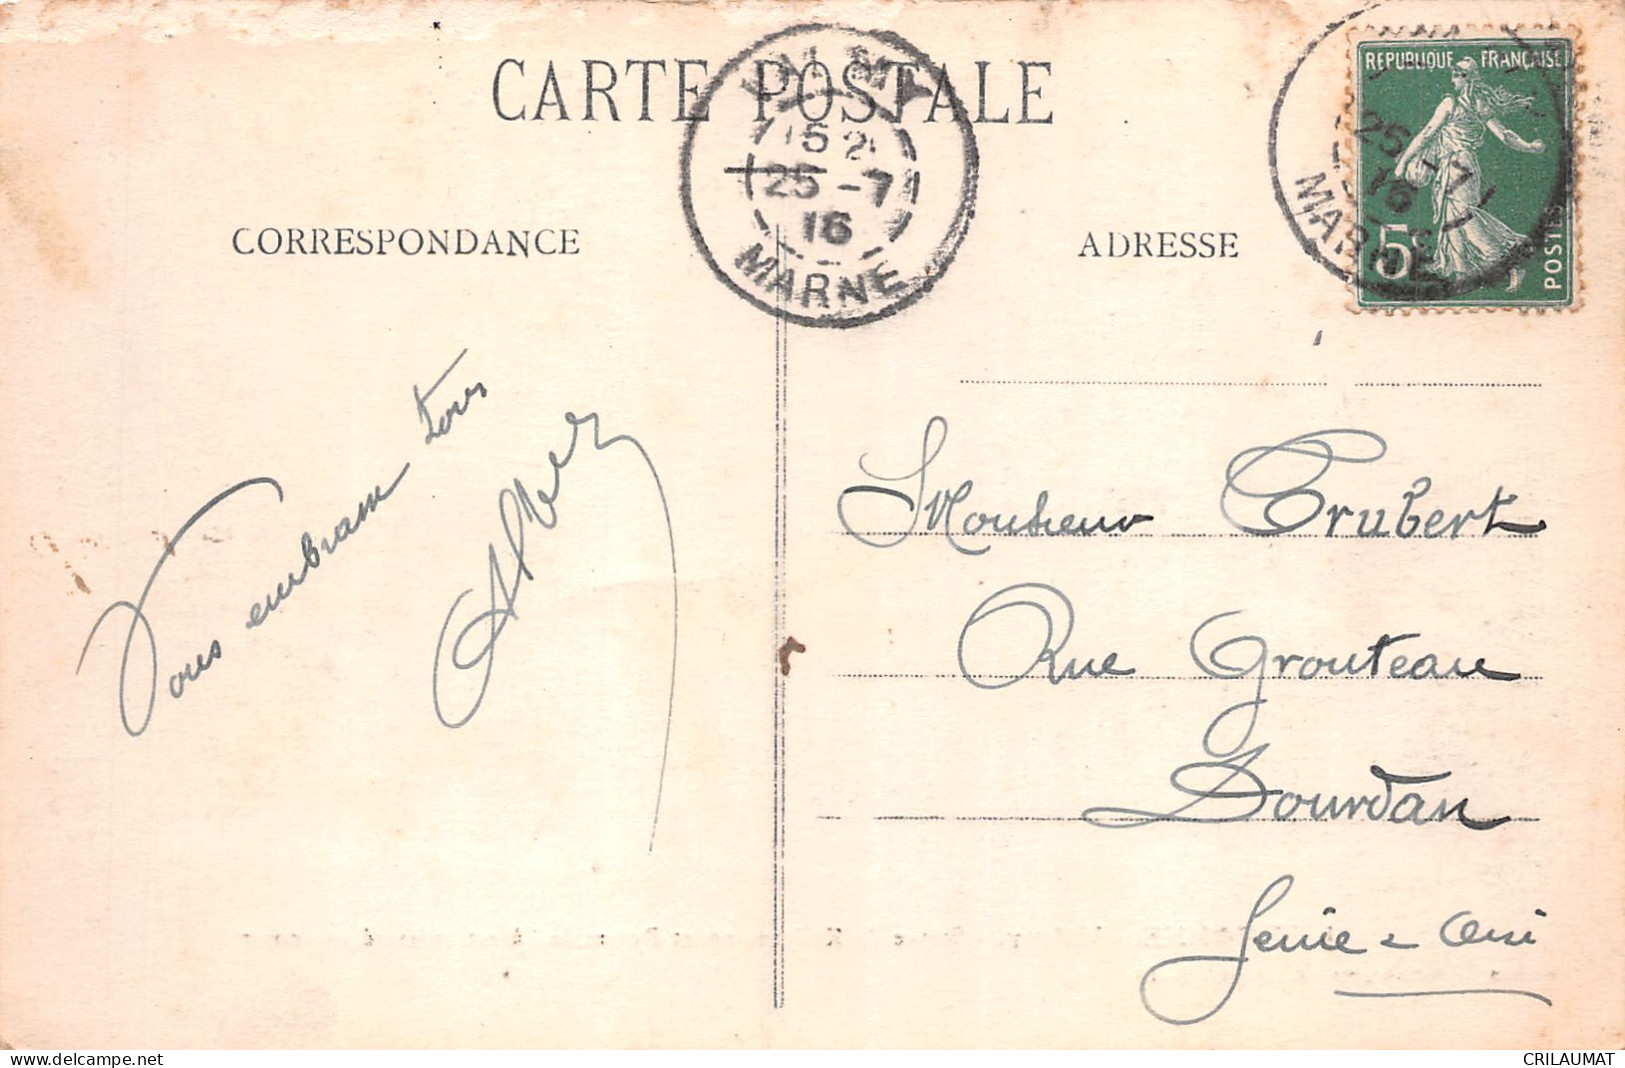 CARTE POSTALE
CORRESPONDANCE
ADRESSE
VALMY
15 2
25 - 7
16
MARNE
REPUBLIQUE FRANÇAISE
5c
POSTES
25 - 7
16
MARNE
Vous embrassent tous
Monsieur Trubert
Rue Grouteau
Dourdan
Seine & Oise
delcampe.net
CRILAUMAT